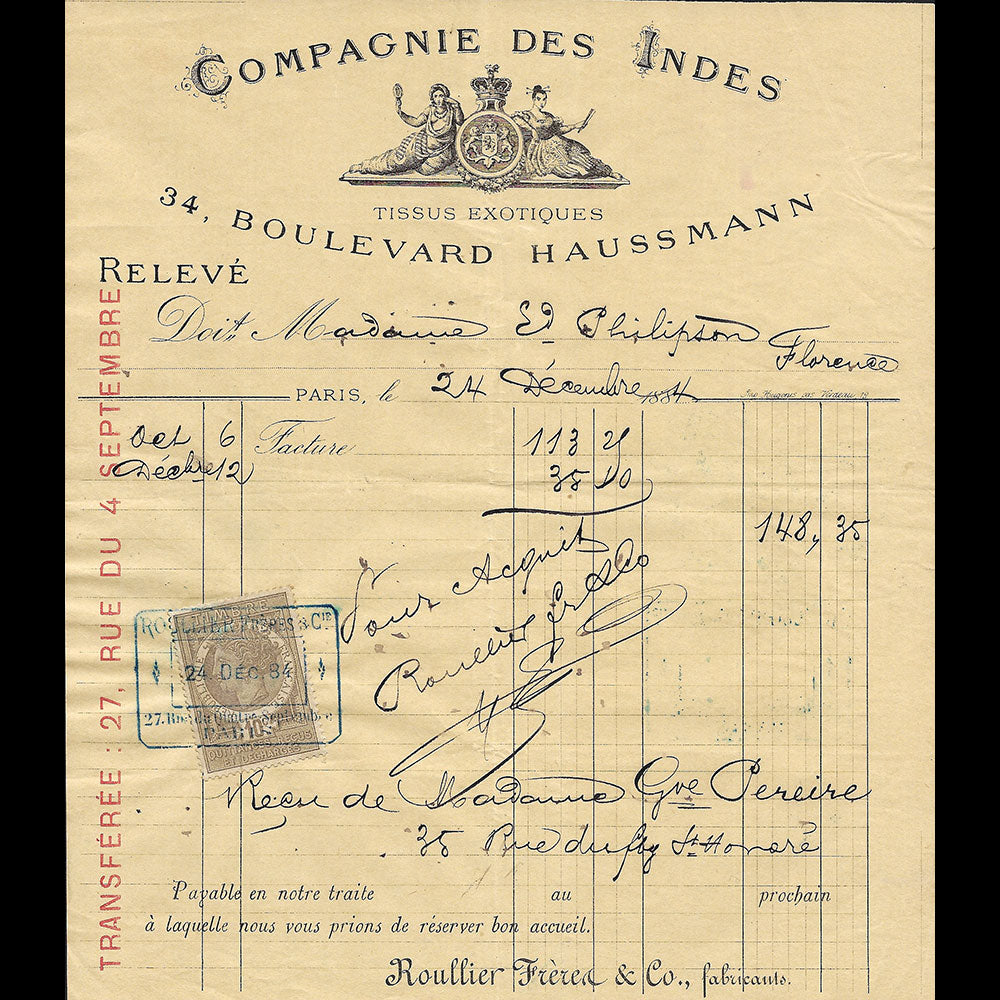 COMPAGNIE DES INDES
TISSUS EXOTIQUES
34, BOULEVARD HAUSSMANN
RELEVÉ
Doit Madame Ed Philipson
Florence
PARIS, le 24 Décembre 1884
Oct 6 Facture 113 25
Décbre 12 35 10
148, 35
Pour Acquit
Roullier Fr & Co
TIMBRE
ROULLIER FRÈRES & CIE
24 DÉC. 84
27. Rue du Quatre Septembre
PARIS
10c
QUITTANCES REÇUS
ET DÉCHARGES
Recu de Madame Gve Pereire
35 Rue du fbg St Honoré
Payable en notre traite au prochain
à laquelle nous vous prions de réserver bon accueil.
Roullier Frères & Co., fabricants.
TRANSFÉRÉE : 27, RUE DU 4 SEPTEMBRE